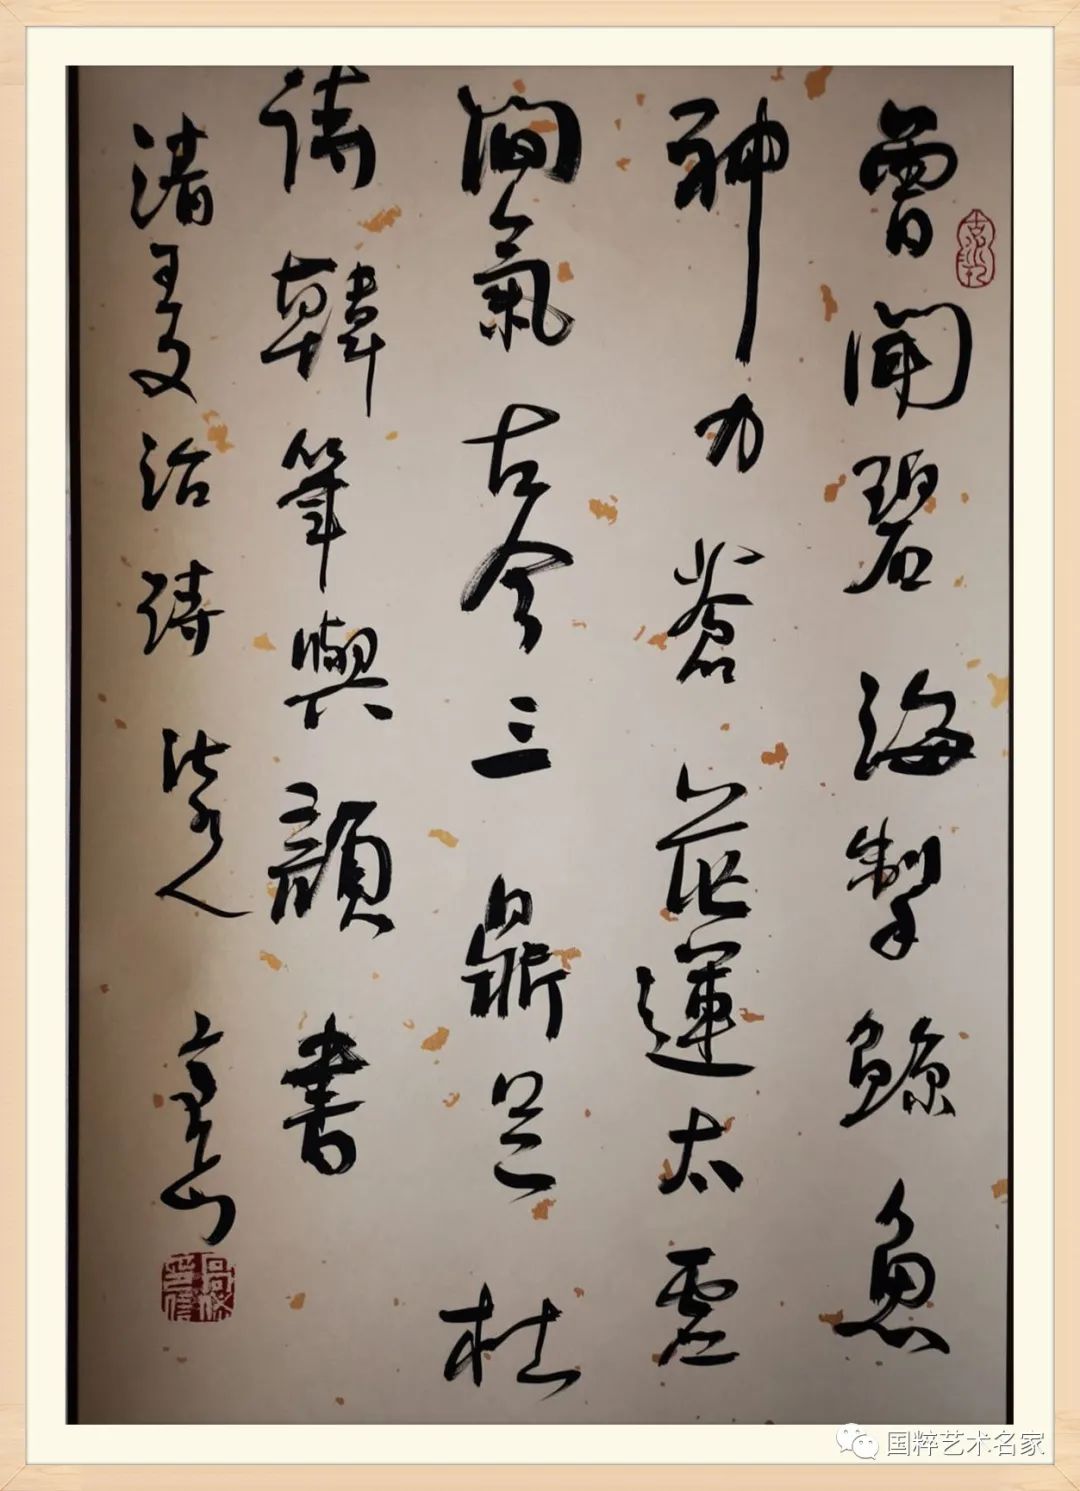 曾聞碧海掣鯨魚
神力蒼茫運太虛
間氣古今三鼎足杜
詩韓筆與顏書
清王文治詩
国粹艺术名家